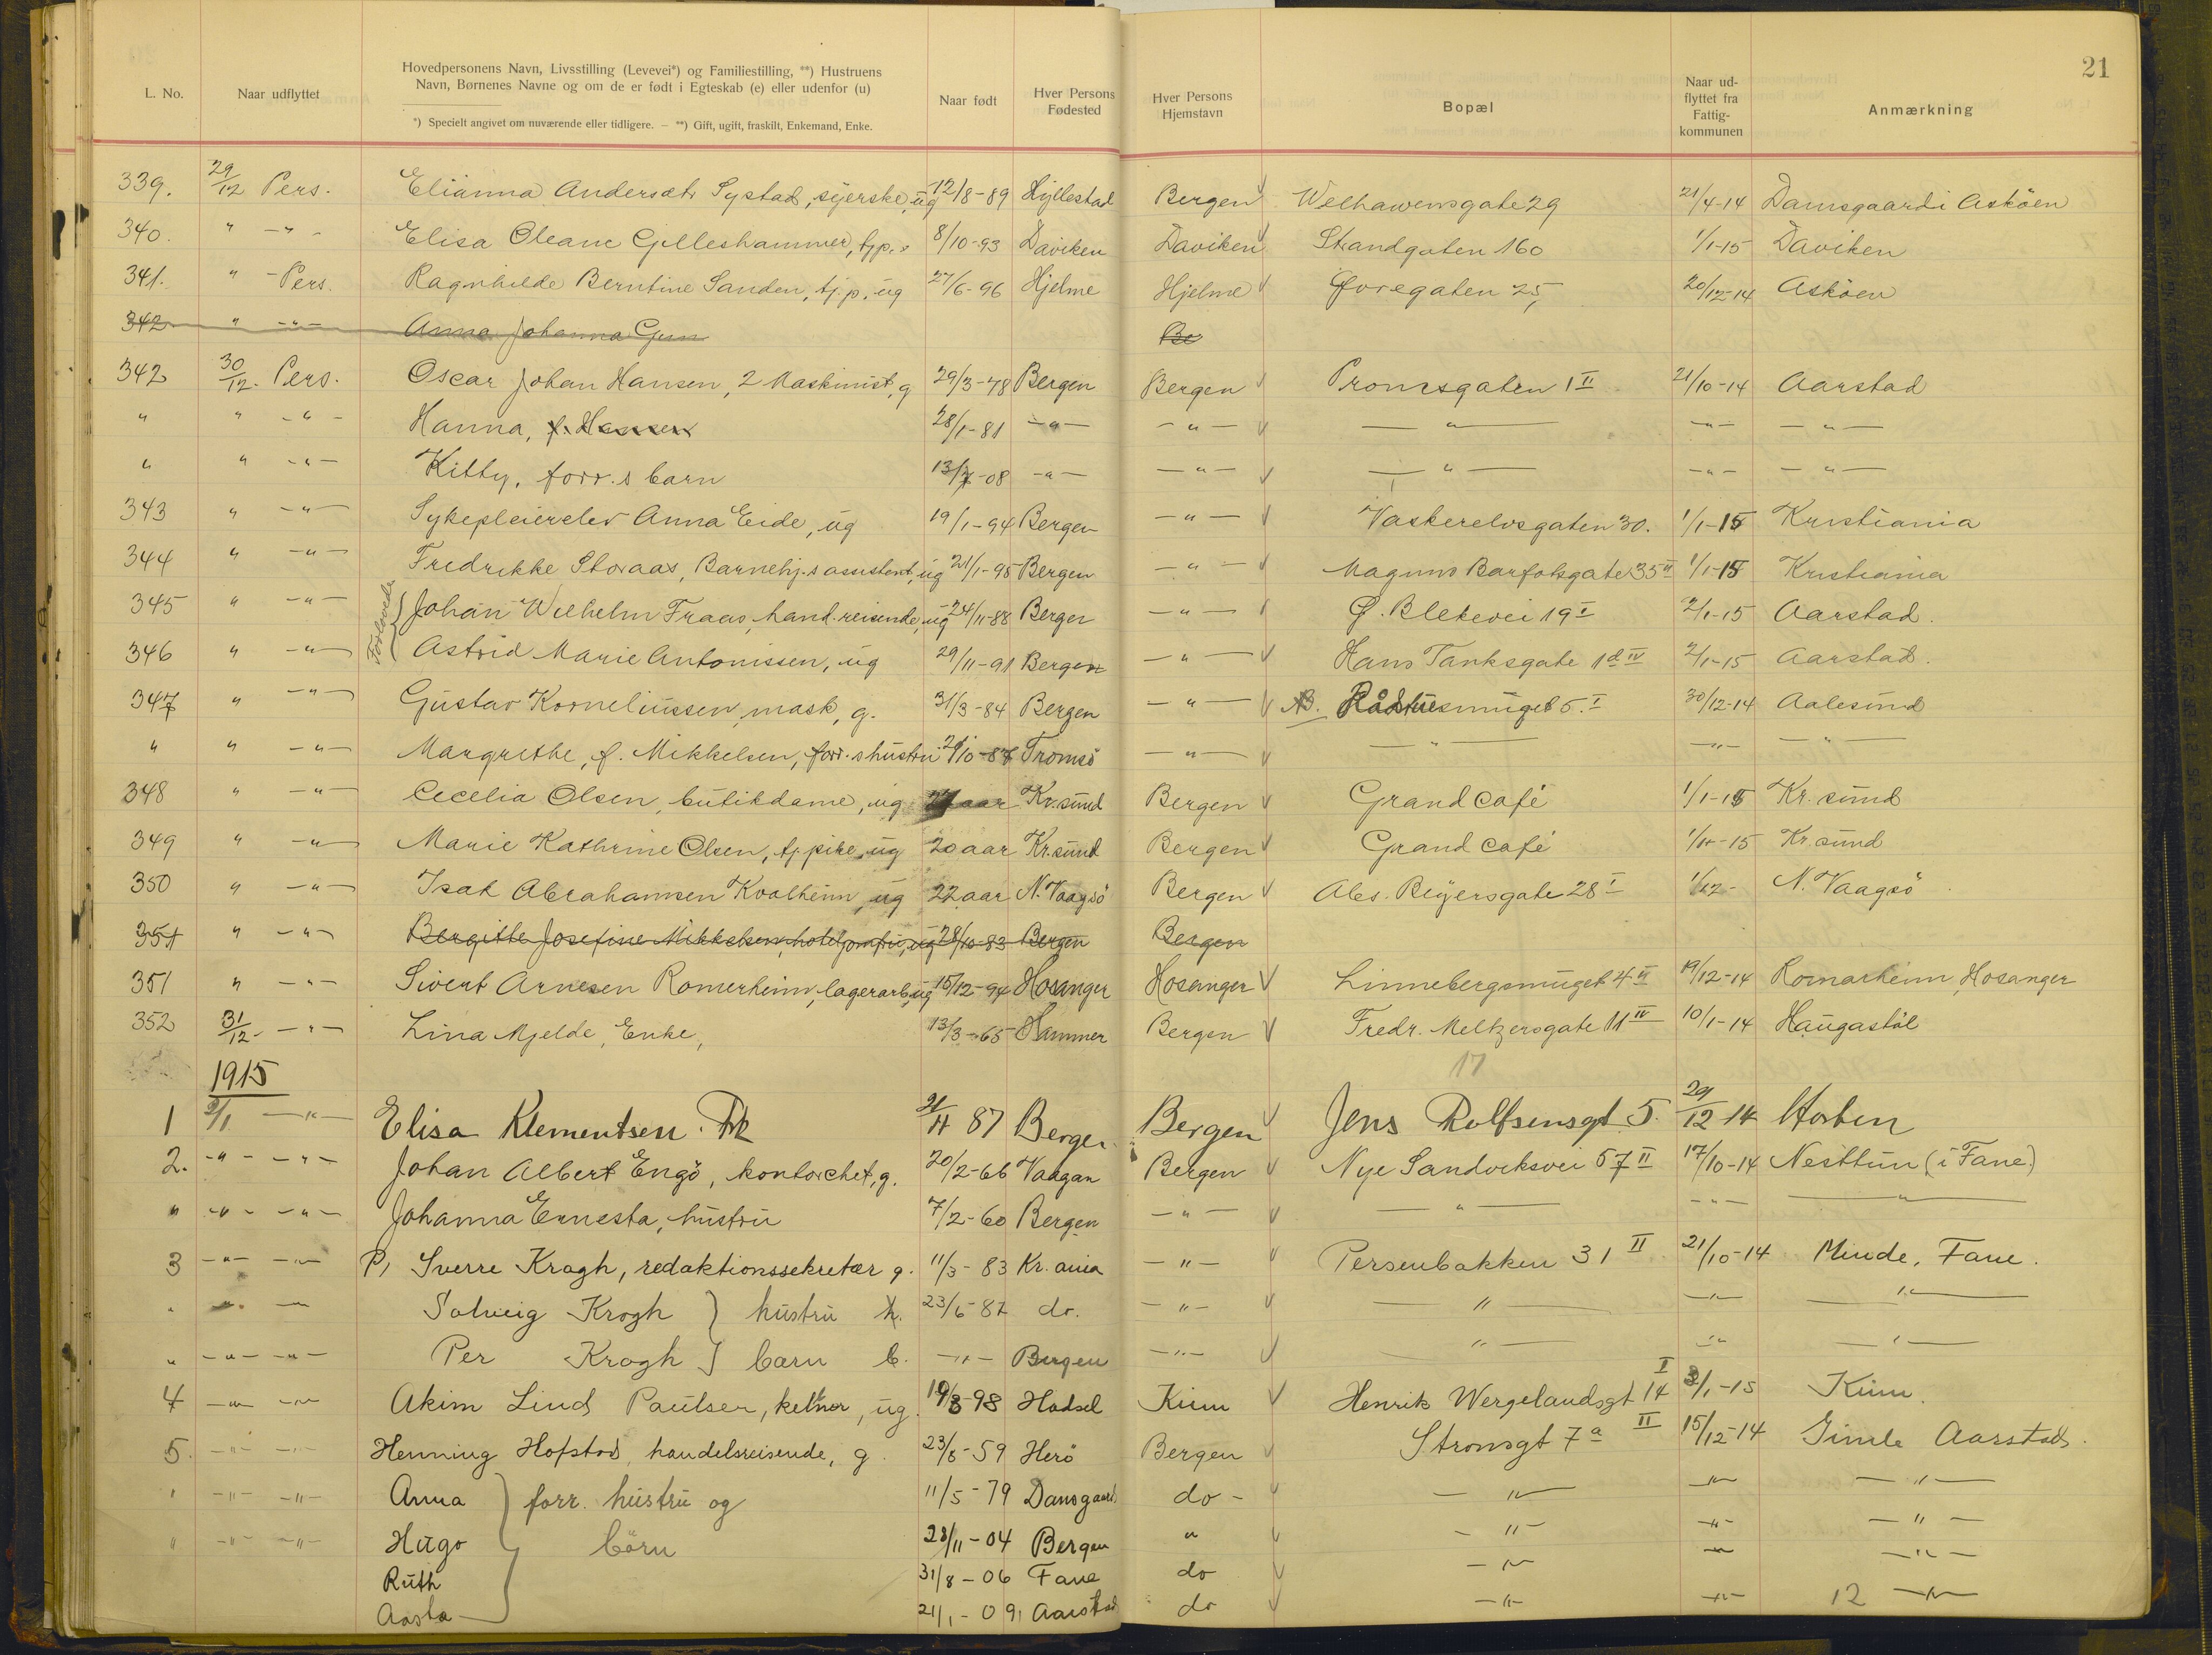 21
L. No. Naar udflyttet Hovedpersonens Navn, Livsstilling (Levevei*) og Familiestilling, **) Hustruens Navn, Børnenes Navne og om de er født i Egteskab (e) eller udenfor (u) Naar født Hver Persons Fødested Hver Persons Hjemstavn Bopæl Naar udflyttet fra Fattigkommunen Anmærkning
*) Specielt angivet om nuværende eller tidligere. — **) Gift, ugift, fraskilt, Enkemand, Enke.
339. 29/12 Pers. Elianna Andersdtr Systad, syerske, ug 12/8-89 Hyllestad Bergen Welhavensgate 29 21/4-14 Damsgaard i Asköen
340. " - " - Elisa Oleane Gilleshammer, tjp. " 8/10-93 Daviken Daviken Strandgaten 160 1/1-15 Daviken
341. " - Pers. Ragnhilde Berntine Sanden, tj.p. ug 27/6-96 Hjelme Hjelme Øvregaten 25, 20/12-14 Asköen
342 " - " - Anna Johanna Gun Be
342 30/12. Pers. Oscar Johan Hansen, 2 Maskinist, g 29/3-78 Bergen Bergen Promsgaten 1 II 21/10-14 Aarstad
" " - " - Hanna, f. Hansen 28/1-81 - " - - " - - " - - " - - " -
" " - " - Kitty, forr.s barn 13/7-08 - " - - " - - " - - " - - " -
343 " - " - Sykepleierelev Anna Eide, ug 19/1-94 Bergen - " - Vaskerelvsgaten 30. 1/1-15 Kristiania
344 " - " - Fredrikke Storaas, Barnehj.s assistent, ug 21/1-95 Bergen - " - Magnus Barfotsgate 35 II 1/1-15 Kristiania
Forlovede
345 " - " - Johan Wilhelm Fraas, hand.reisende, ug 24/11-88 Bergen - " - Ø. Blekevei 19 I 2/1-15 Aarstad.
346 " - " - Astrid Marie Antonissen, ug 29/11-91 Bergen - " - Hans Tanksgate 1d IV 2/1-15 Aarstad.
347 " - " - Gustav Korneliussen, mask, g. 31/3-84 Bergen - " - Rådstuesmuget 5. I 30/12-14 Aalesund
" " - " - Margrethe, f. Mikkelsen, forr.s hustru Tromsö - " - - " - - " - - " -
348 " - " - Cecelia Olsen, butikdame, ug aar Kr.sund Bergen Grand Café 1/1-15 Kr.sund
349 " - " - Marie Kathrine Olsen, tj.pike, ug 20 aar Kr.sund Bergen Grand Café 1/1-15 Kr.sund
350 " - " - Isak Abrahamsen Kvalheim, ug 22 aar N. Vaagsö Bergen Abs. Beyersgate 28 I 1/12- N. Vaagsö
351 " - " - Bergitte Josefine Mikkelsen, hoteljomfru, ug 28/10-83 Bergen Bergen
351 " - " - Sivert Arnesen Romerheim, lagerarb, ug 15/12-94 Hosanger Hosanger Linnebergsmuget 4 II 19/12-14 Romarheim, Hosanger
352 31/12. - " - Lina Mjelde, Enke, 13/3-65 Hammer Bergen Fredr. Meltzersgate 11 IV 10/1-14 Haugastöl
17
1915
1 2/1 - " - Elisa Klementsen. Frk 21/11 87 Bergen Bergen Jens Rolfsensgt 5. 29/12-14 Horten
2. - " - - " - Johan Albert Engö, kontorchef, g. 20/2-66 Vaagan Bergen Nye Sandviksvei 57 II 17/10-14 Nesttun (i Fane)
" - " - - " - Johanna Ernesta, hustru 7/2-60 Bergen - " - - " - - " - - " -
3 - " - - " - P, Sverre Krogh, redaktionssekretær g. 11/3-83 Kr.ania - " - Persenbakken 31 II 21/10-14 Minde, Fane.
" " - Solveig Krogh } hustru h. 23/6-87 do. - " - - " - - " - - " -
" - " - - " - Per Krogh } barn b. - " - Bergen - " - - " - - " - - " -
4 - " - - " - Akim Lind Paulsen, kelner, ug. 19/8-98 Hadsel Kinn Henrik Wergelandsgt 14 I 3/1-15 Kinn.
5. - " - - " - Henning Hofstad, handelsreisende, g. 23/8-59 Herö Bergen Stromgt 7a II 15/12-14 Gimle Aarstad.
" - " - - " - Anna } forr. hustru og 11/5-79 Damsgaard do - - " - - " - - " -
" - " - - " - Hugo börn 28/11-04 Bergen " - " - - " - - " -
Ruth 31/8-06 Fane do - " - - " - - " -
Aasta 21/1-09, Aarstad do - " - - " - 12 - " -